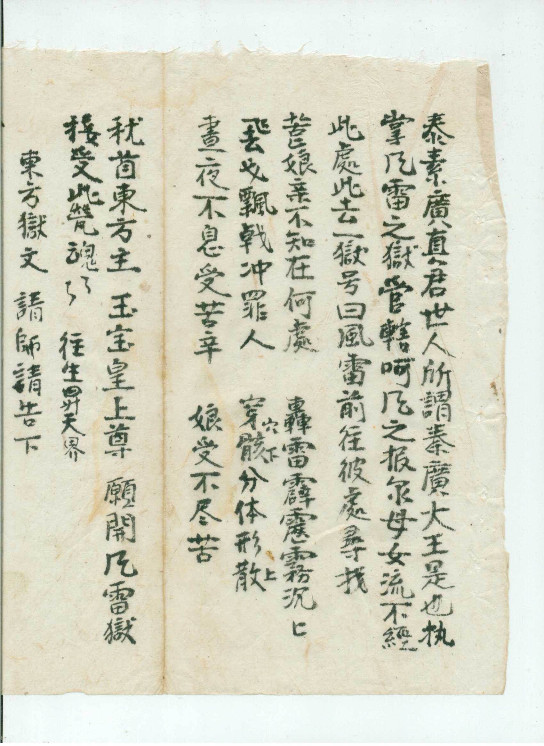 泰素廣真君世人所謂秦廣大王是也执
掌凡雷之獄管轄呵凡之报尔母女流不經
此處此去一獄号曰風雷前往彼處尋找
苦娘亲不知在何處 轟雷霹靂霧沉上
飛去也飄戟冲罪人 穿骸分体形散
穴下 上
晝夜不息受苦辛 娘受不尽苦
秖首東方主 玉宝皇上尊 願開凡雷獄
接受此茕魂 往生昇天界
東方獄文 請師請告下